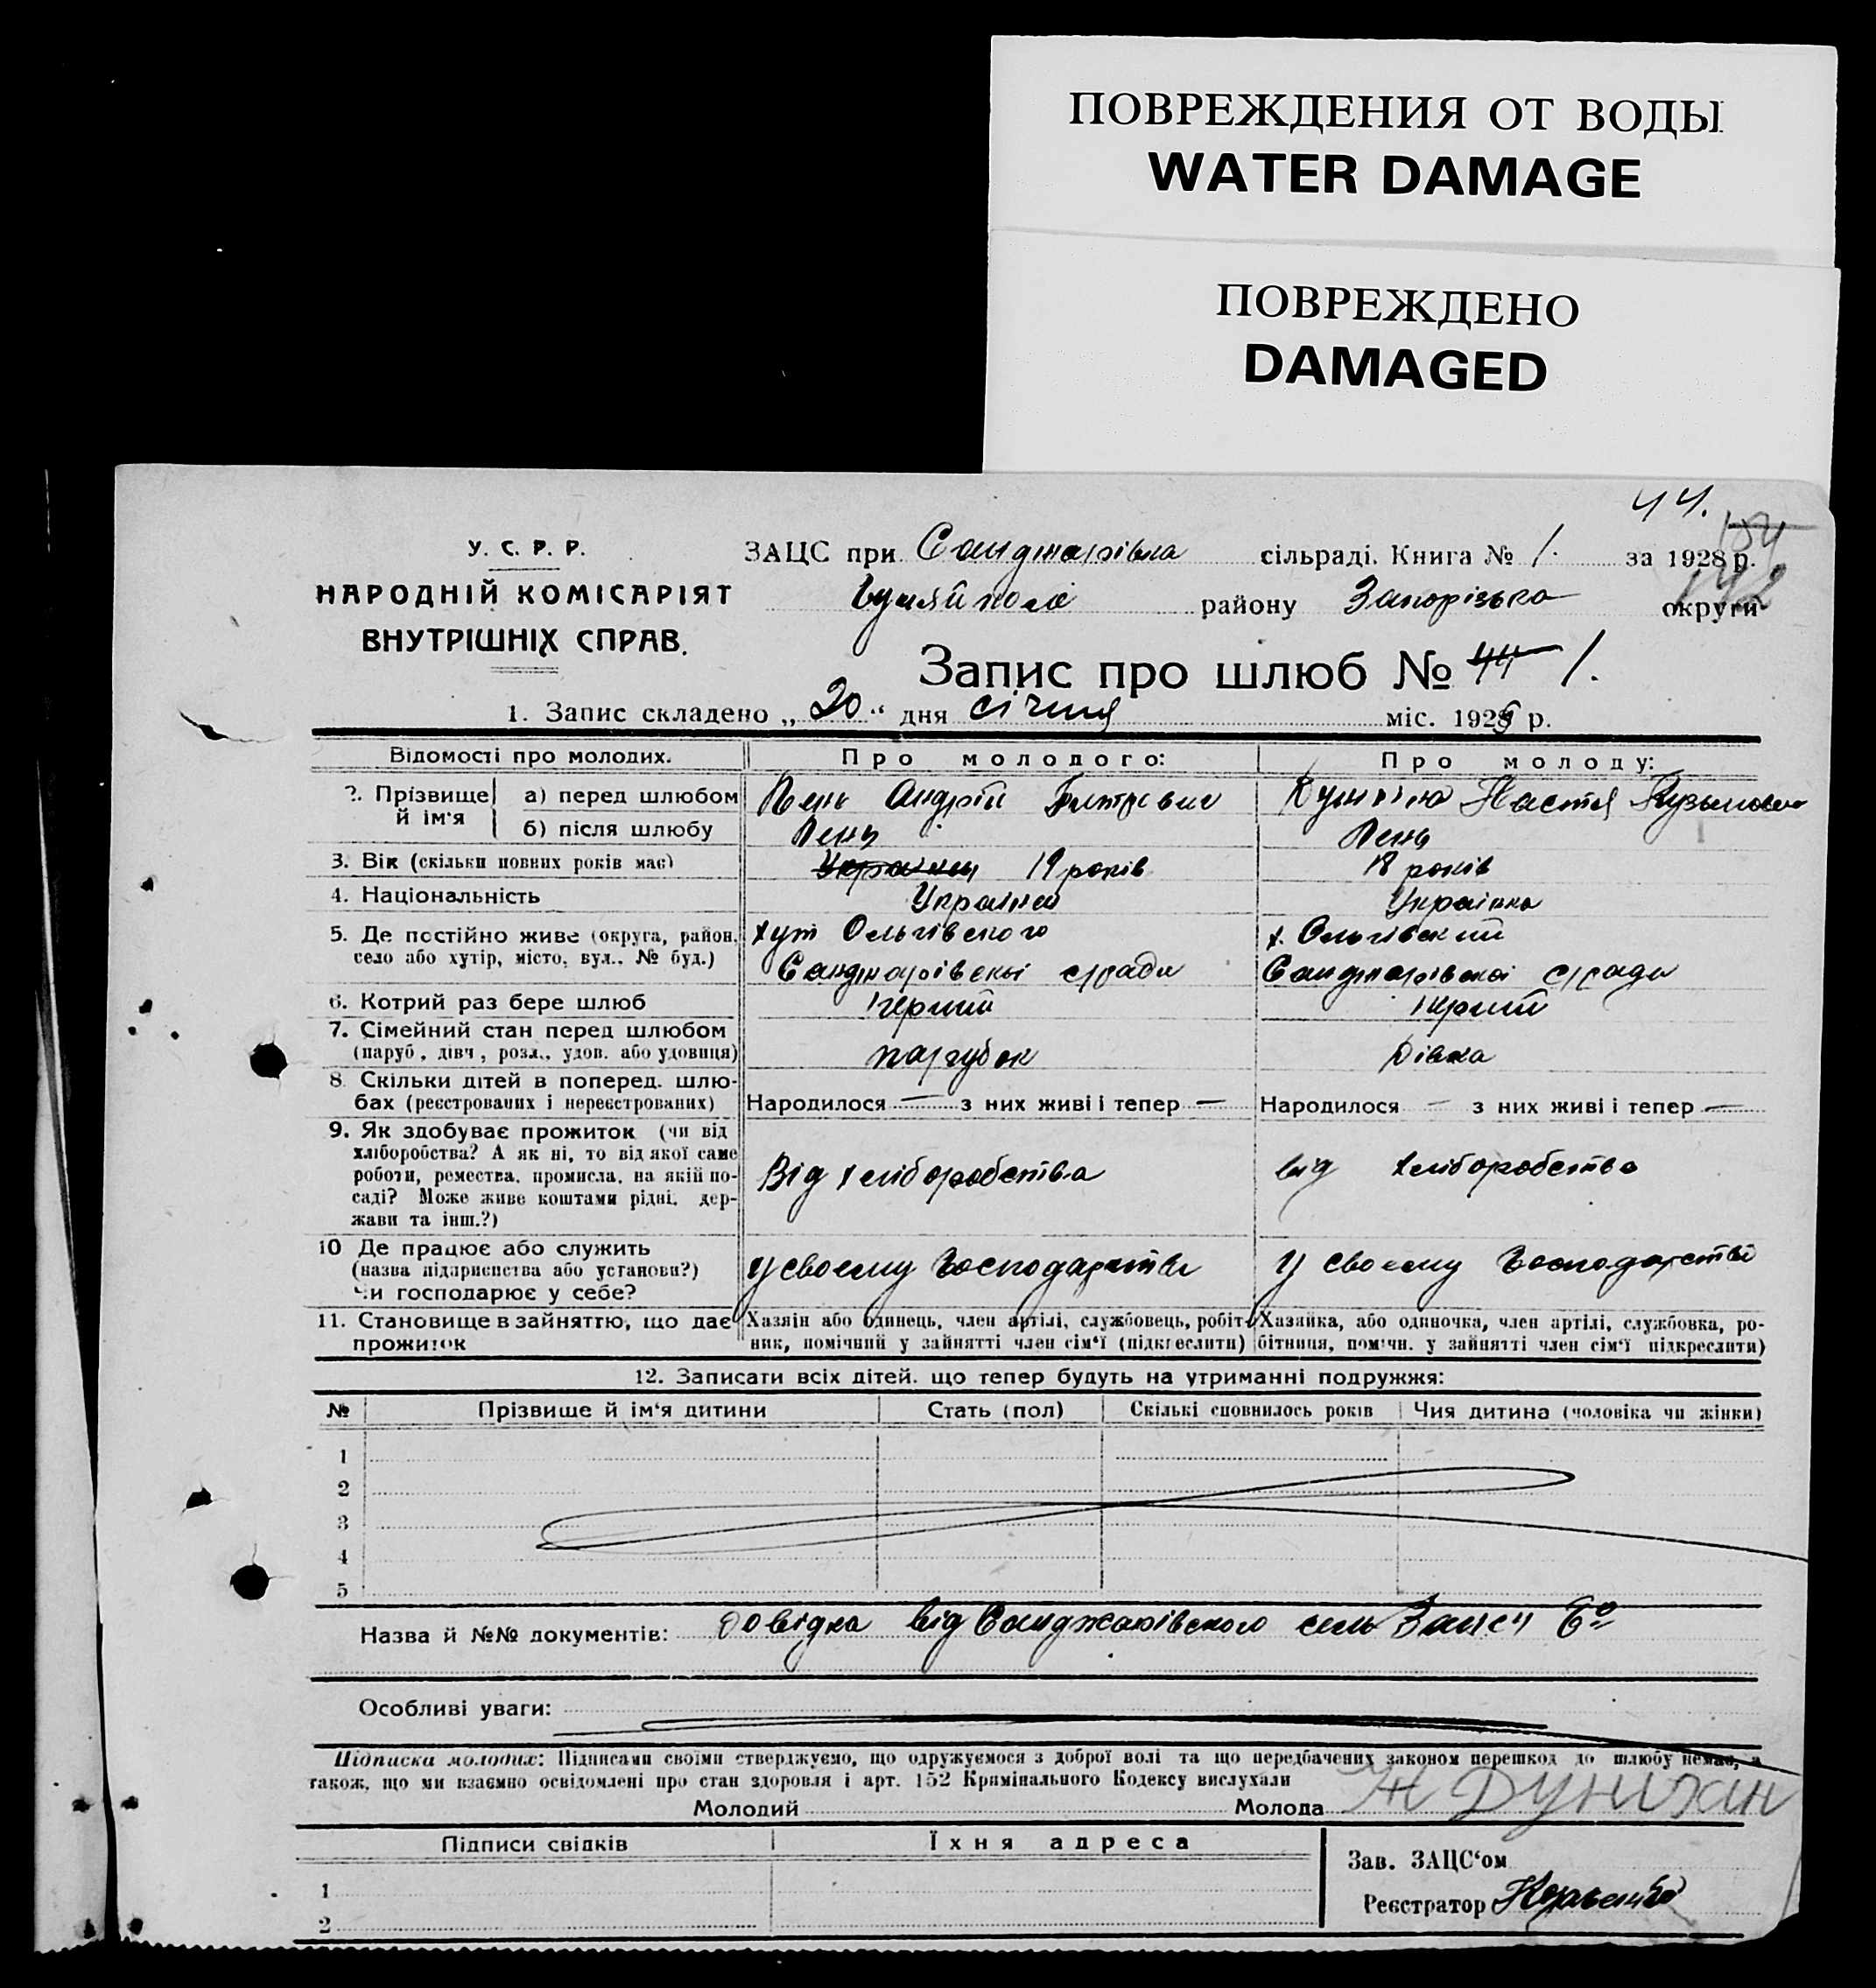 ПОВРЕЖДЕНИЯ ОТ ВОДЫ
WATER DAMAGE
ПОВРЕЖДЕНО
DAMAGED
44.
У. С. Р. Р.
НАРОДНІЙ КОМІСАРІЯТ
ВНУТРІШНІХ СПРАВ.
ЗАЦС при Санджарівка сільраді. Книга № 1. за 1928 р.
Гуляйполе району Запорізька округи
Запис про шлюб № 44 1.
1. Запис складено „ 20 “ дня січня міс. 1929 р.
Відомості про молодих. Про молодого: Про молоду:
2. Прізвище й ім'я а) перед шлюбом Пень Андрій Настя
б) після шлюбу Пень Пень
3. Вік (скільки повних років має) 19 років 18 років
4. Національність Українец Українка
5. Де постійно живе (округа, район, село або хутір, місто, вул., № буд.) хут Ольгівского х. Ольгівский
Санджарівскої с/ради Санджарівскої с/ради
6. Котрий раз бере шлюб перший перший
7. Сімейний стан перед шлюбом
(паруб., дівч., розл., удов. або удовиця) парубок Дівка
8. Скільки дітей в поперед. шлю-
бах (реєстрованих і нереєстрованих) Народилося — з них живі і тепер — Народилося — з них живі і тепер —
9. Як здобуває прожиток (чи від
хліборобства? А як ні, то від якої саме
роботи, ремества, промисла, на якій по-
саді? Може живе коштами рідні, дер-
жави та інш.?) Від хліборобства від хліборобства
10 Де працює або служить
(назва підприємства або установи?)
Чи господарює у себе? у своєму господарстві у своєму господарстві
11. Становище в зайняттю, що дає прожиток
Хазяін або одинець, член артілі, службовець, робіт-
ник, помічний у зайнятті член сім'ї (підкреслити)
Хазяйка, або одиночка, член артілі, службовка, ро-
бітниця, помічн. у зайнятті член сім'ї підкреслити)
12. Записати всіх дітей. що тепер будуть на утриманні подружжя:
№ Прізвище й ім'я дитини Стать (пол) Скількі сповнилось років Чия дитина (чоловіка чи жінки)
1
2
3
4
5
Назва й №№ документів: Довідка від Санджарівского
Особливі уваги:
Підписка молодих: Підписами своїми стверджуємо, що одружуємося з доброї волі та що передбачених законом перешкод до шлюбу немає, а
також, що ми взаємно освідомлені про стан здоровля і арт. 152 Крямінального Кодексу вислухали
Молодий Молода
Підписи свідків Їхня адреса
Зав. ЗАЦС'ом
1
Реєстратор
2